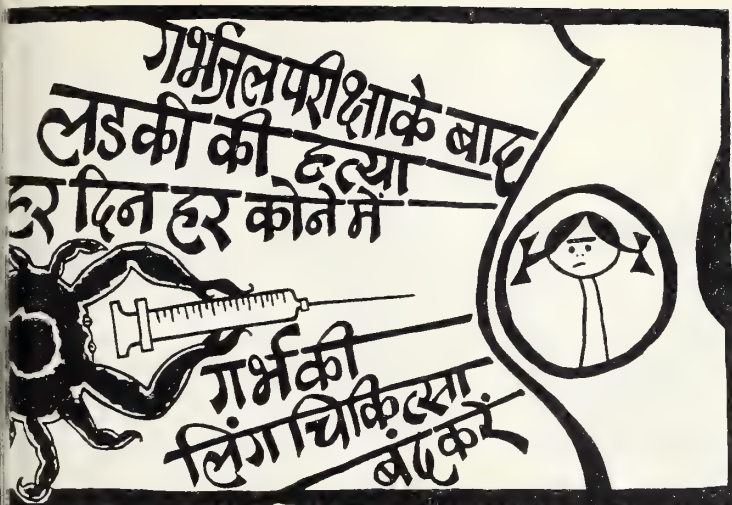 गर्भजल परीक्षा के बाद
लडकी की हत्या
हर दिन हर कोने में
गर्भ की
लिंग चिकित्सा
बंद करें